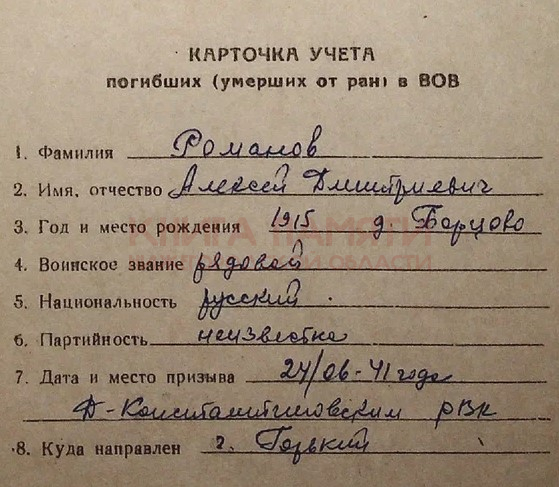 КАРТОЧКА УЧЕТА
погибших (умерших от ран) в ВОВ
1. Фамилия Романов
2. Имя, отчество Алексей Дмитриевич
3. Год и место рождения 1915 д. Борцово
КНИГА ПАМЯТИ
4. Воинское звание рядовой
ОБЛАСТИ
5. Национальность русский.
6. Партийность неизвестно
7. Дата и место призыва 24/06-41 года
Д-Константиновским РВК
8. Куда направлен г. Горький